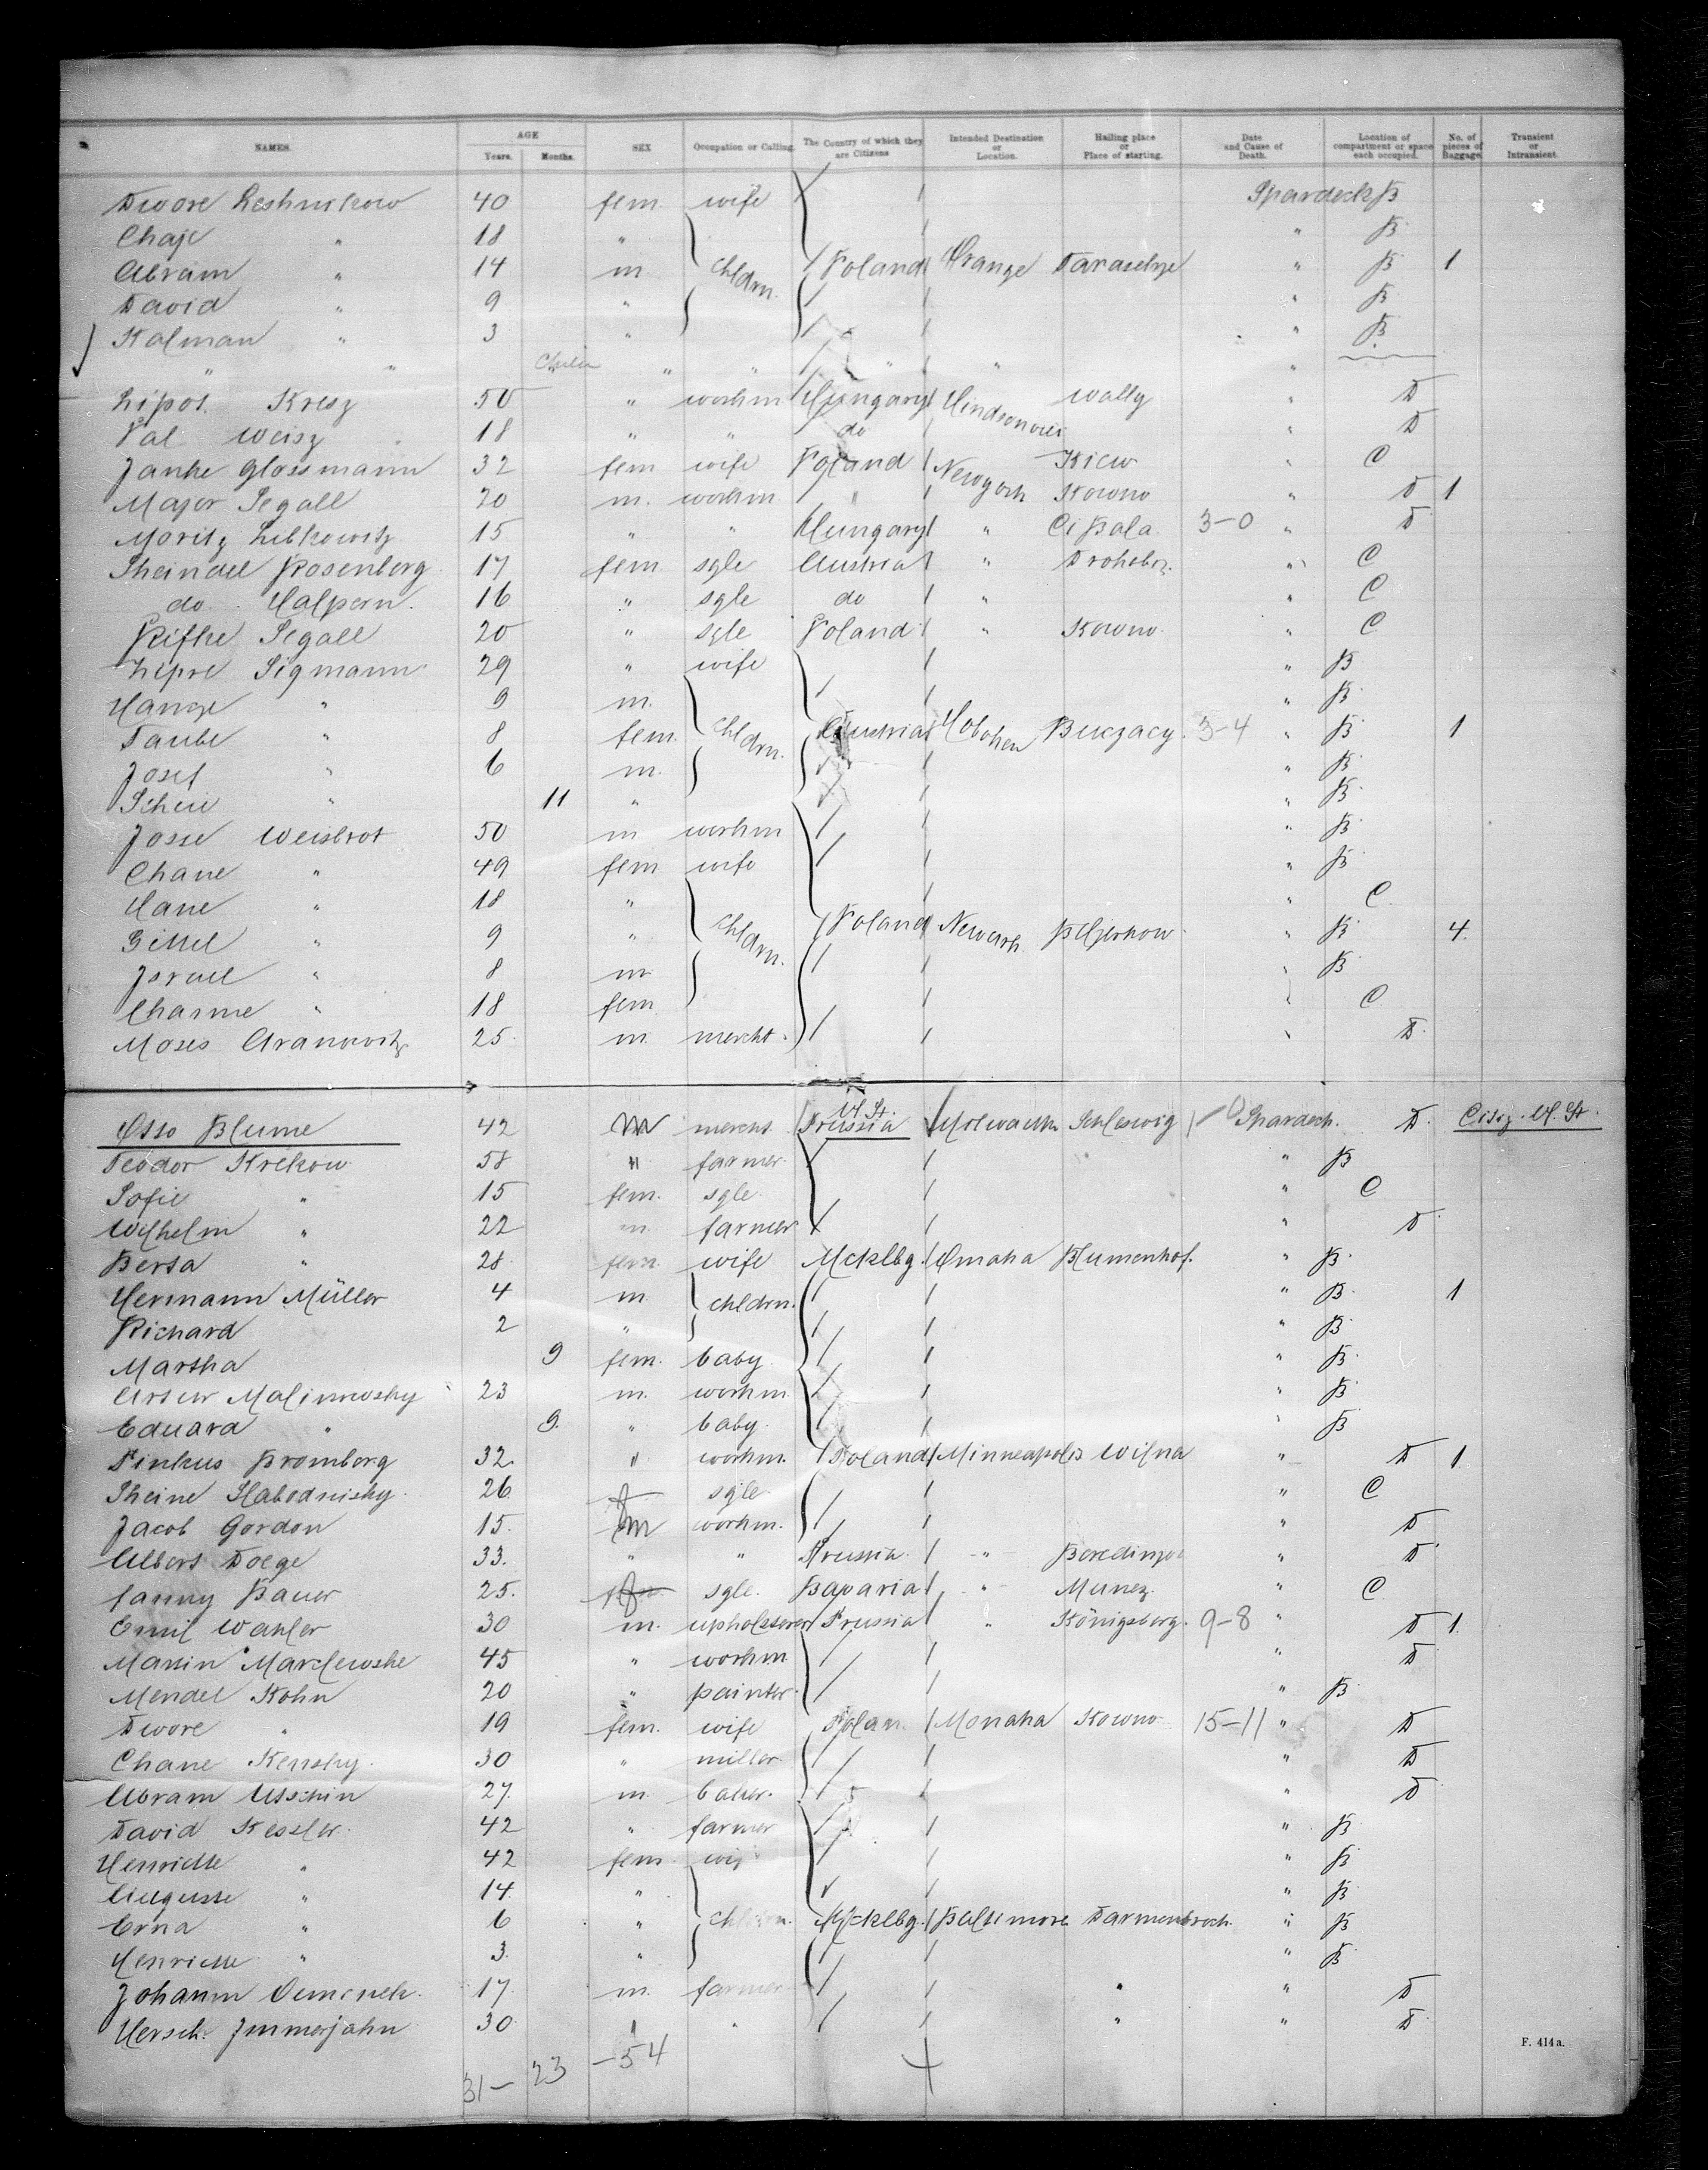 NAMES. AGE Years. Months. SEX Occupation or Calling. The Country of which they are Citizens Intended Destination or Location. Hailing place or Place of starting. Date and Cause of Death. Location of compartment or space each occupied. No. of pieces of Baggage. Transient or Intransient.
Dwore 40 fem. wife Spardeck B
Chaje " 18 " " B
Abram " 14 m chldrn. Poland Orange " B 1
David " 9 " " B
Kalman " 3 " " B
" " " " " " "
Lipot Kresz 50 " workm Hungary Wally " D
Pal Weisz 18 " " do " D
Janke Glassmann 32 fem wife Poland Kiew " C
Major Segall 20 m. workm. " Newyork Kowno " D 1
Moritz 15 " " Hungary " 3-0 " D
Sheindel Rosenberg 17 fem sgle Austria " " C
do. Halpern. 16 " sgle do " " C
Rifke Segall 20 " sgle Poland " Kowno " C
Sigmann 29 " wife " B
" 9 m. " B
Taube " 8 fem. chldrn. Austria Hoboken Buczacz 3-4 " B 1
Josef " 6 m. " B
" 11 " " B
Josse Weisbrot 50 m workm " B
Chane " 49 fem wife " B
Hane " 18 " " C
Gittel " 9 " chldrn. Poland Newark " B 4.
Israel " 8 m " B
" 18 fem " C
Moses Aranowitz 25 m. mercht. " D.
Otto Blume 42 m mercht U. St. Prussia Schleswig Spardeck. D. Citiz. U. St.
Teodor Krekow 58 " farmer " B
Sofie " 15 fem. sgle. " C
Wilhelm " 22 m. farmer " D
Berta " 28 fem. wife Mcklbg. Omaha Blumenhof. " B.
Hermann Müller 4 m chldrn. " B. 1
Richard 2 " " B.
Martha 9 fem. baby. " B.
Artur Malinowsky 23 m. workm " B
Eduard " 9. " baby. " B
Pinkus Bromberg 32. " workm. Poland Minneapolis Wilna " D 1
Sheine 26. f sgle. " C
Jacob Gordon 15. m workm. " D
Albert Doege 33. " " Prussia. " " D
Fanny Bauer 25. sgle. Bavaria " " C
Emil Wahler 30 m. upholsterer Prussia " Königsberg. 9-8 " D 1.
Martin 45 " workm " D
Mendel Kohn 20 " painter. " B.
Dwore " 19 fem. wife Polan. Monaha Kowno 15-11 " D
Chane 30 " miller. " D
Abram 27. m. baker. " D
David Kessler. 42 " farmer " B
Henriette " 42 fem " B
Auguste " 14. " " B
Erna " 6 " Mcklbg. Baltimore " B
Henriette " 3. " " B
Johann 17. m. farmer " " D
Hersch. Immerjahn 30 " " " " D
31- 23 -54
F. 414a.